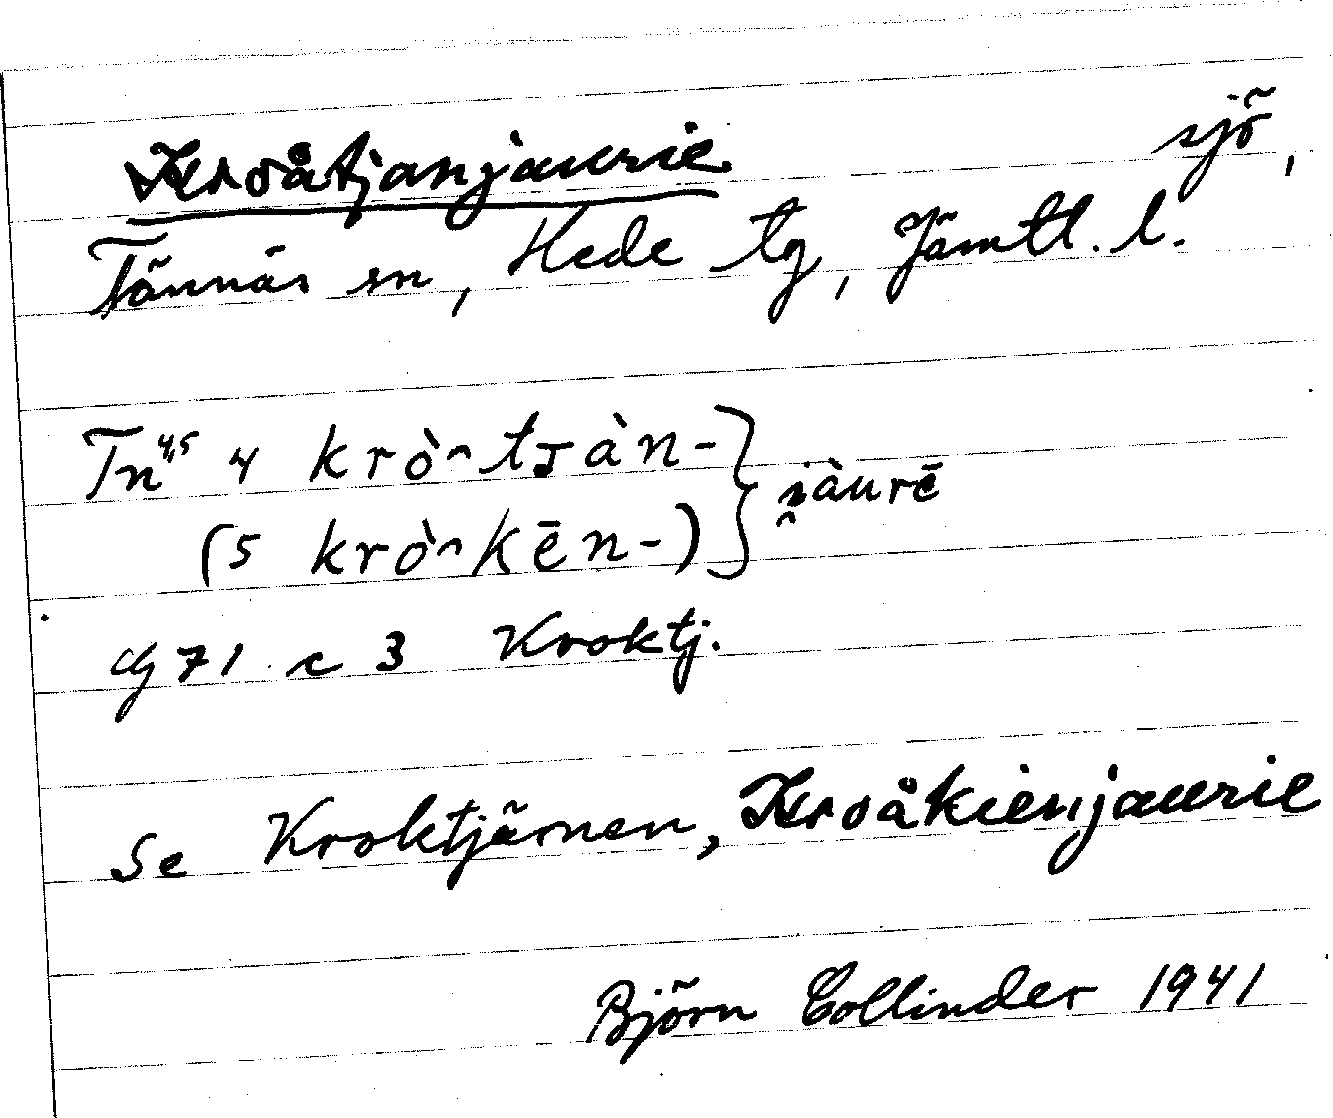 Kroåtjanjaurie sjö,
Tännäs sn, Hede tg, Jämtl. l.
Tn 4,5 4 krò̭tᴊàn- } i̯àurē
(5 krò̭kēn-)
G 71 c 3 Kroktj.
Se Kroktjärnen, Kroåkienjaurie
Björn Collinder 1941